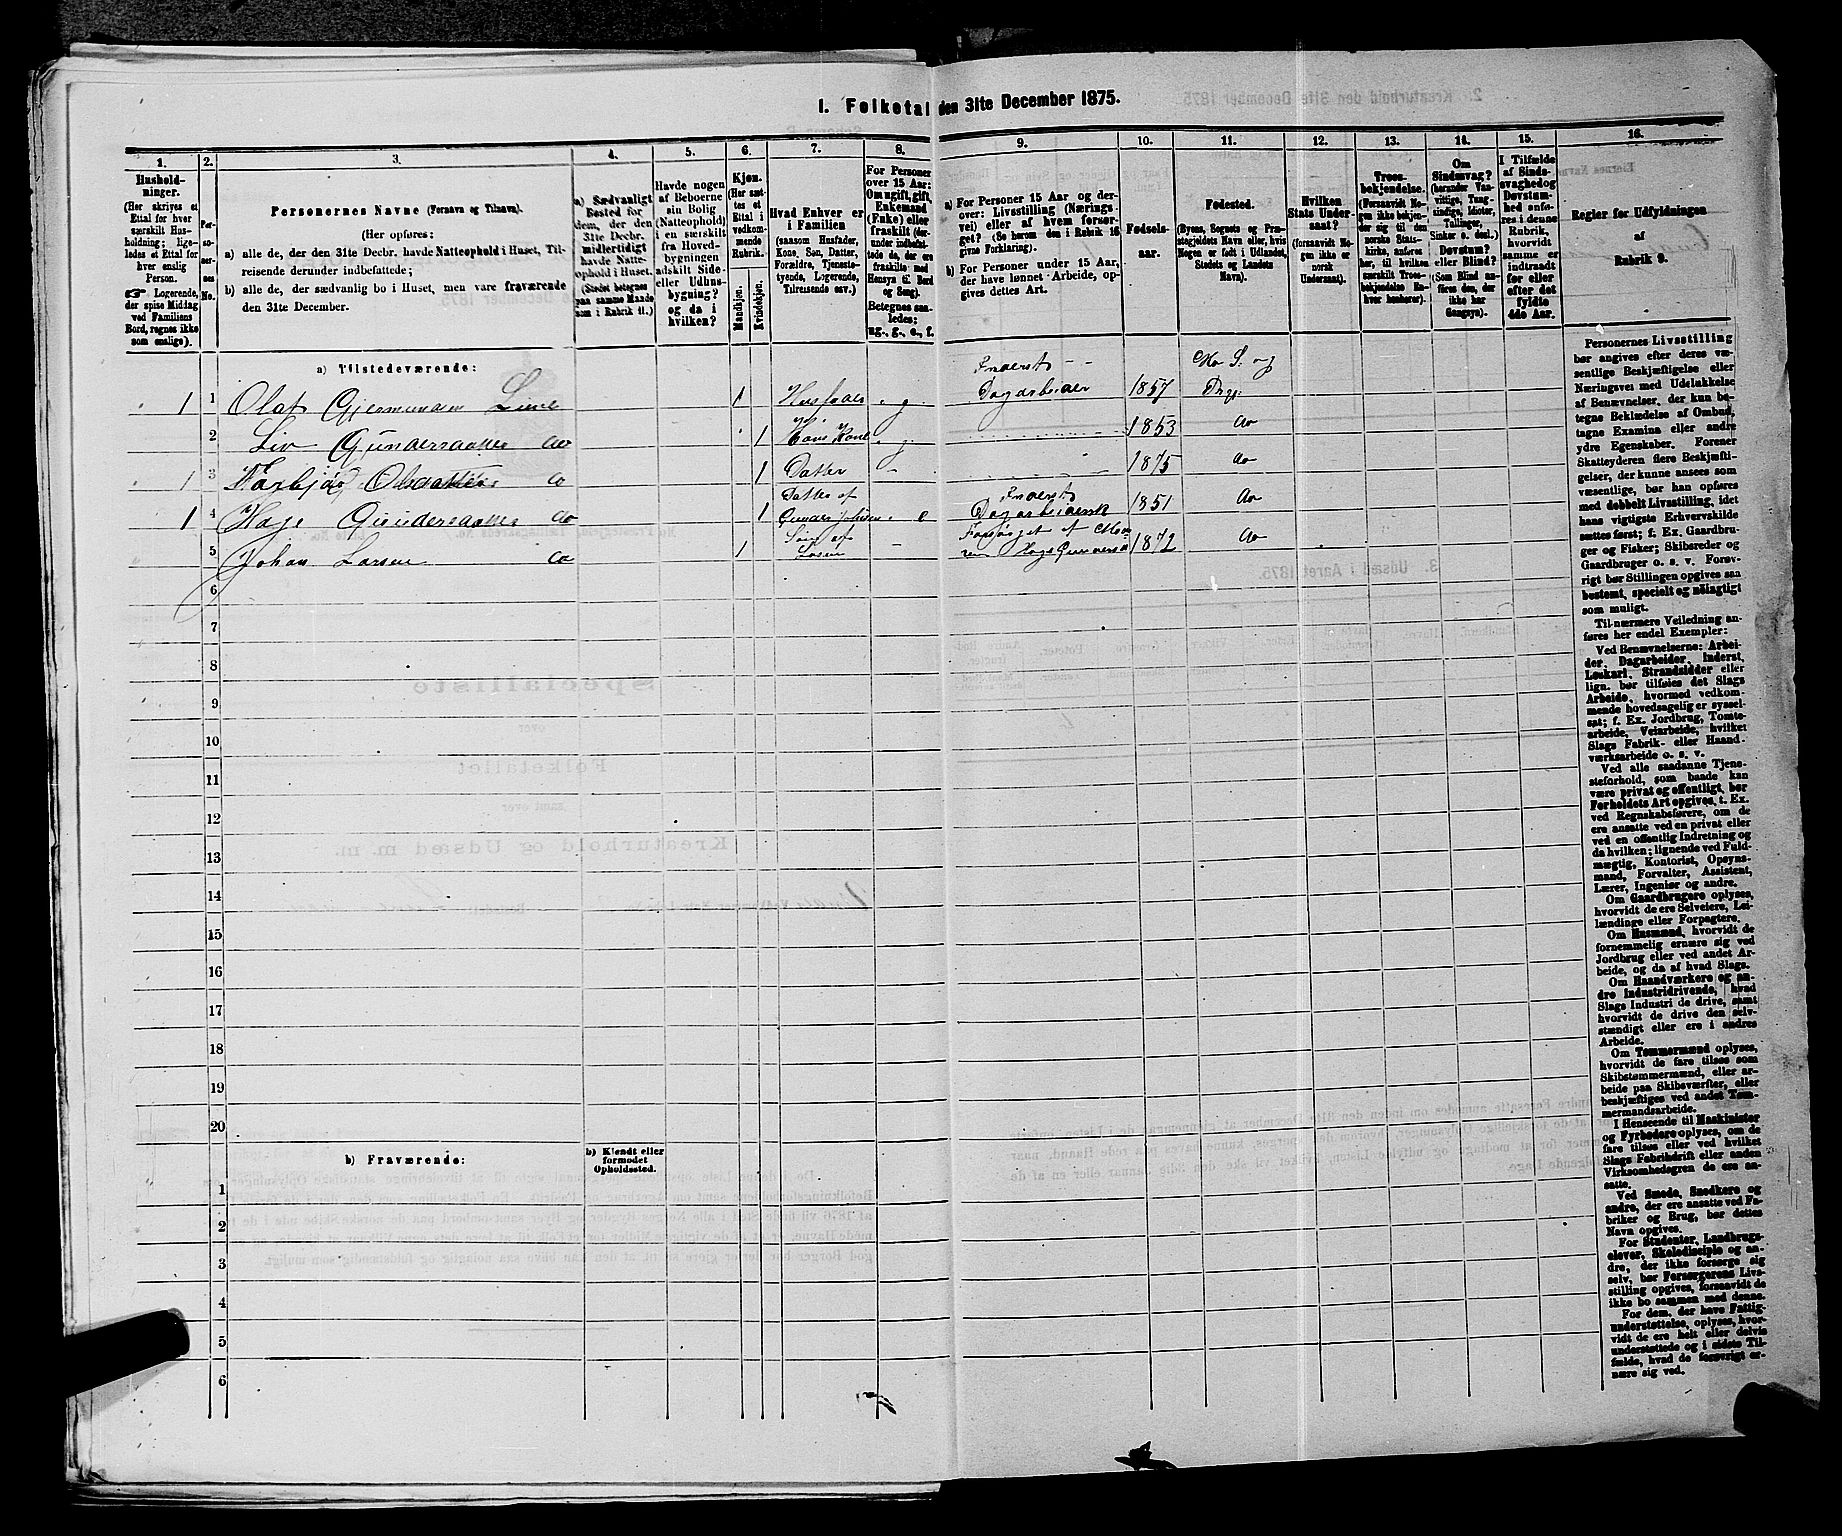 1. Folketal den 31te December 1875.
1. 2. 3. 4. 5. 6. 7. 8. 9. 10. 11. 12. 13. 14. 15. 16.
Hushold-
ninger.
(Her skrives et
Ettal for hver
særskilt Hus-
holdning; lige-
ledes et Ettal for
hver enslig
Person.
☞ Logerende,
der spise Middag
ved Familiens
Bord, regnes ikke
som enslige).
Per-
so-
ner-
nes
No.
Personernes Navne (Fornavn og Tilnavn).
(Her opføres:
a) alle de, der den 31te Decbr. havde Natteophold i Huset, Til-
reisende derunder indbefattede;
b) alle de, der sædvanlig bo i Huset, men vare fraværende
den 31te December.
a) Sædvanligt
Bosted for
dem, der den
31te Decbr.
midlertidigt
havde Natte-
ophold i Huset.
(Stedet betegnes
paa samme Maade
som i Rubrik 11.)
Havde nogen
af Beboerne
sin Bolig
(Natteophold)
i en særskilt
fra Hoved-
bygningen
adskilt Side-
eller Udhus-
bygning?
og da i
hvilken?
Kjøn.
(Her sæt-
tes et
Ettal i
vedkom-
mende
Rubrik.
Mandkjøn.
Kvindekjøn.
Hvad Enhver er
i Familien
(saasom Husfader,
Kone, Søn, Datter,
Forældre, Tjeneste-
tyende, Logerende,
Tilreisende osv.)
For Personer
over 15 Aar:
Om ugift, gift,
Enkemand
(Enke) eller
fraskilt (der-
under indbefat-
tede de, der ere
fraskilte med
Hensyn til Bord
og Seng).
Betegnes saa-
ledes:
ug., g., e., f.
a) For Personer 15 Aar og der-
over: Livsstilling (Nærings-
vei) eller af hvem forsør-
get? (Se herom den i Rubrik 16
givne Forklaring).
b) For Personer under 15 Aar,
der have lønnet Arbeide, op-
gives dettes Art.
Fødsels-
aar.
Fødested.
(Byens, Sognets og Præ-
stegjeldets Navn eller, hvis
Nogen er født i Udlandet,
Stedets og Landets
Navn).
Hvilken
Stats Under-
saat?
(forsaavidt No-
gen ikke er
norsk
Undersaat).
Troes-
bekjendelse.
(Forsaavidt No-
gen ikke bekjen-
der sig til den
norske Stats-
kirke, anføres
her, til hvilken
særskilt Troes-
bekjendelse En-
hver henhører).
Om
Sindssvag?
(herunder Van-
vittige, Tung-
sindige, Idioter,
Tullinger,
Sinker o. desl.)
Døvstum?
eller Blind?
(Som Blind an-
føres den, der
ikke har
Gangsyn).
I Tilfælde
af Sinds-
svaghed og
Døvstum-
hed anfø-
res i denne
Rubrik,
hvorvidt
samme er
indtraadt
før eller
efter det
fyldte
4de Aar.
Regler for Udfyldningen
af
Rubrik 9.
a) Tilstedeværende:
1 1 Olaf Gjermundsen Line 1 Husfader g Inderst Dagarbeider 1857 Mo S. og Prgj.
2 Liv Gundersdatter do 1 Hans Kone g 1853 do
3 Olsdatter do 1 Datter 1875 do
1 4 Hage Gundersdatter do 1 Datter af Gunder e Inderst Dagarbeiderske 1851 do
5 Johan Larsen do 1 Søn af Forsørget af 1872 do
6
7
8
9
10
11
12
13
14
15
16
17
18
19
20
b) Fraværende:
b) Kjendt eller
formodet
Opholdssted.
1
2
3
4
5
6
Personernes Livsstilling
bør angives efter deres væ-
sentlige Beskjæftigelse eller
Næringsvei med Udelukkelse
af Benævnelser, der kun be-
tegne Beklædelse af Ombud,
tagne Examina eller andre
ydre Egenskaber. Forener
Skatteyderen flere Beskjæfti-
gelser, der kunne ansees som
væsentlige, bør han opføres
med dobbelt Livsstilling, idet
hans vigtigste Erhvervskilde
sættes først; f. Ex. Gaardbru-
ger og Fisker; Skibsreder og
Gaardbruger o. s. v. Forøv-
rigt bør Stillingen opgives saa
bestemt, specielt og nøiagtigt
som muligt.
Til nærmere Veiledning an-
føres her endel Exempler:
Ved Benævnelserne: Arbei-
der, Dagarbeider, Inderst,
Løskarl, Strandsidder eller
lign. bør tilføies det Slags
Arbeide, hvormed vedkom-
mende hovedsagelig er syssel-
sat; f. Ex. Jordbrug, Tomte-
arbeide, Veiarbeide, hvilket
Slags Fabrik- eller Haand-
værksarbeide o. s. v.
Ved alle saadanne Tjene-
steforhold, som baade kan
være privat og offentligt, bør
Forholdets Art opgives, t. Ex.
ved Regnskabsførere, om de
ere ansatte ved en privat eller
ved en offentlig Indretning og
da hvilken; lignende ved Fuld-
mægtig, Kontorist, Opsyns-
mand, Forvalter, Assistent,
Lærer, Ingeniør og andre.
Om Gaardbrugere oplyses,
hvorvidt de ere Selveiere, Lei-
lændinge eller Forpagtere.
Om Husmænd, hvorvidt de
fornemmelig ernære sig ved
Jordbrug eller ved andet Ar-
beide, og da af hvad Slags.
Om Haandværkere og an-
dre Industridrivende, hvad
Slags Industri de drive, samt
hvorvidt de drive den selv-
stændigt eller ere i andres
Arbeide.
Om Tømmermænd oplyses,
hvorvidt de fare tilsøs som
Skibstømmermænd, eller ar-
beide paa Skibsværfter, eller
beskjæftiges ved andet Tøm-
mermandsarbeide.
I Henseende til Maskinister
og Fyrbødere oplyses, om de
fare tilsøs eller ved hvilket
Slags Fabrikdrift eller anden
Virksomhedsgren de ere an-
satte.
Ved Smede, Snedkere og
andre, der ere ansatte ved Fa-
briker og Brug, bør dettes
Navn opgives.
For Studenter, Landbrugs-
elever, Skoledisciple og an-
dre, der ikke forsørge sig
selv, bør Forsørgerens Livs-
stilling opgives, forsaavidt de
ikke bo sammen med denne.
For dem, der have Fattig-
understøttelse, oplyses, hvor-
vidt de ere helt eller delvis
understøttede og i sidste Til-
fælde, hvad de forøvrigt er-
nære sig ved.